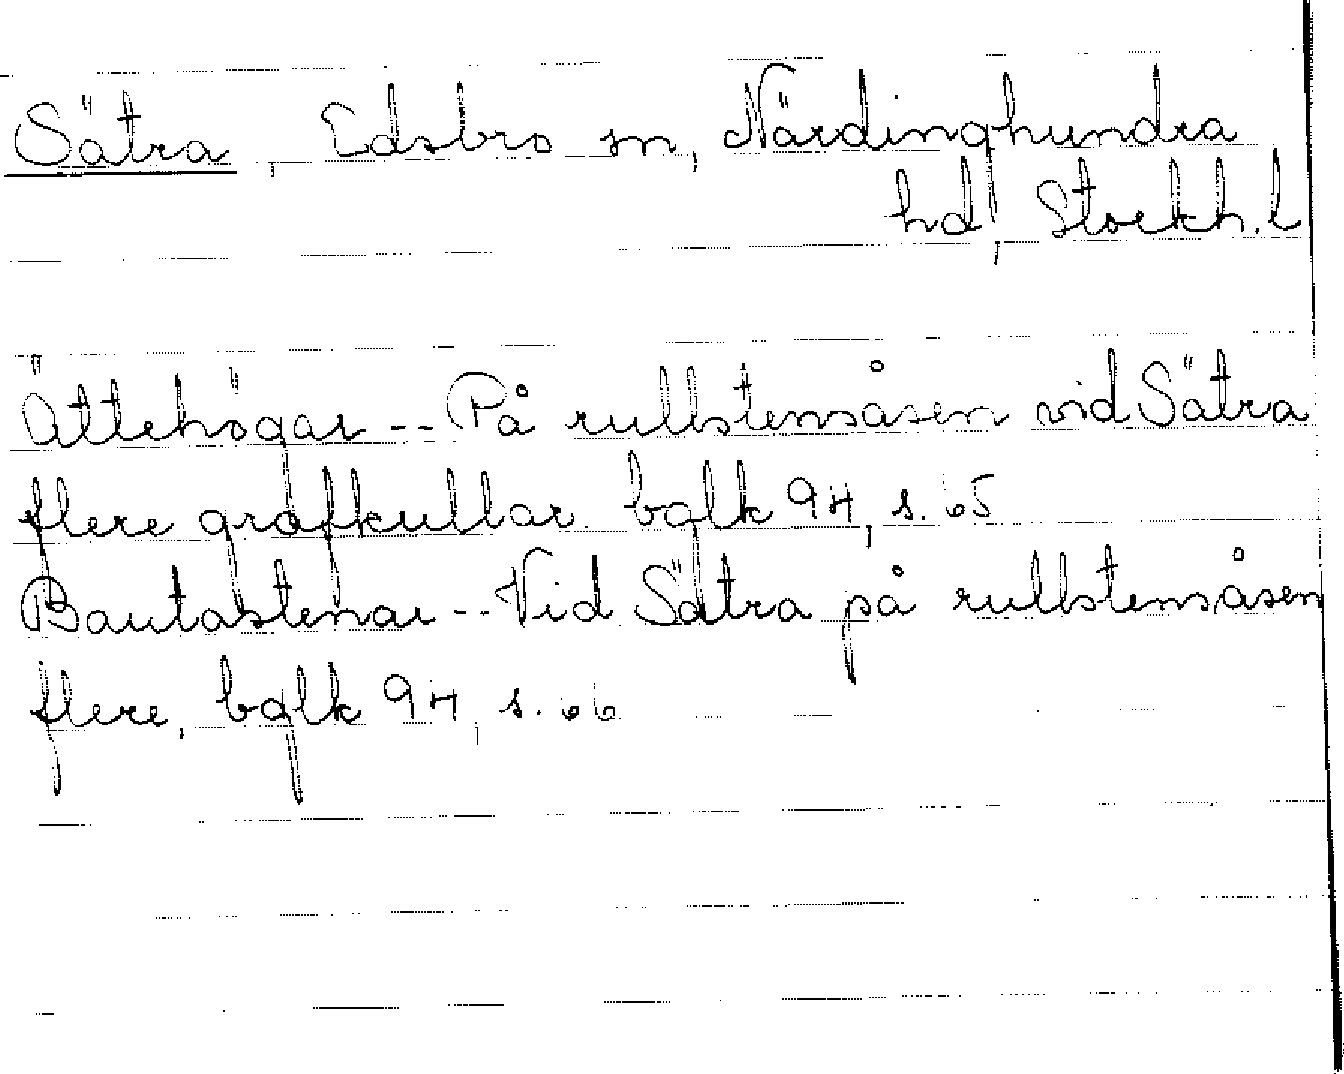 Sätra, Edsbro sn, Närdinghundra
hd, Stockh. l
Ättehögar -- På rullstensåsen vid Sätra
flere grafkullar. bqlk 94, s. 65
Bautastenar -- Vid Sätra på rullstensåsen
flere, bqlk 94, s. 66